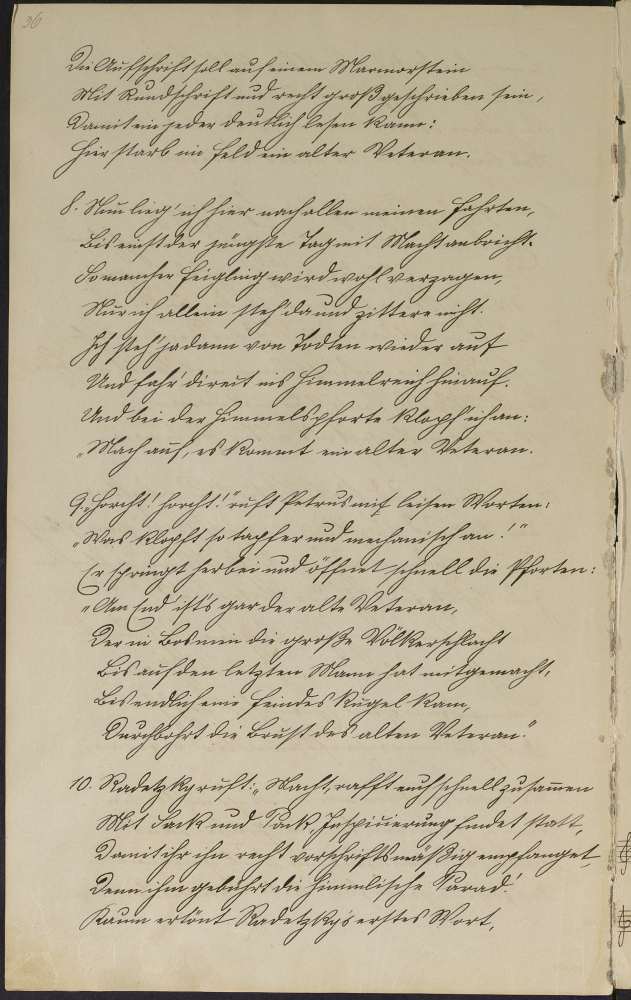 36
Die Aufschrift soll auf einem Marmorstein
Mit Rundschrift und recht groß geschrieben sein,
Damit ein jeder deutlich lesen kann:
Hier starb im Feld ein alter Veteran.
8. Nun lieg' ich hier nach allen meinen Fahrten,
Bis einst der jüngste Tag mit Macht anbricht.
So mancher Feigling wird wohl verzagen,
Nur ich allein steh' da und zittere nicht.
Ich steh' ja dann von Todten wieder auf
Und fahr' direkt ins Himmelreich hinauf.
Und bei der Himmelspforte klopf' ich an:
„Mach auf, es kommt ein alter Veteran.
9. „Horcht! horcht!" ruft Petrus mit leisen Worten:
„Was klopft so tapfer und mechanisch an!"
Er springt herbei und öffnet schnell die Pforten:
„Am End' ist's gar der alte Veteran,
Der in Bosnien die große Völkerschlacht
Bis auf den letzten Mann hat mitgemacht,
Bis endlich eine Feindeskugel kam,
Durchbohrt die Brust des alten Veteran."
10. Radetzky ruft: „Macht, rafft euch schnell zusam̄en
Mit Sack und Pack. Inspicierung findet statt,
Damit ihr ihn recht vorschriftsmäßig empfanget,
Denn ihm gebührt die himmlische Parad.'
Kaum ertönt Radetzky's erstes Wort,